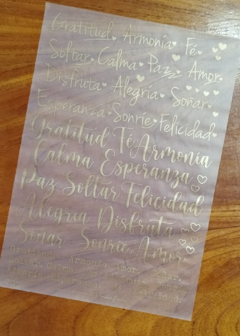 Gratitud Armonia Fé
Soltar Calma Paz Amor
Disfruta Alegria Soñar
Esperanza Sonrie Felicidad
Gratitud Fé Armonia
Calma Esperanza
Paz Soltar Felicidad
Alegria Disfruta
Soñar Sonrie Amor